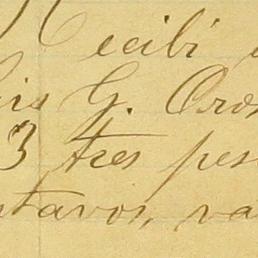 Recibí
G. Oros
3 tres pes
ntavos, va